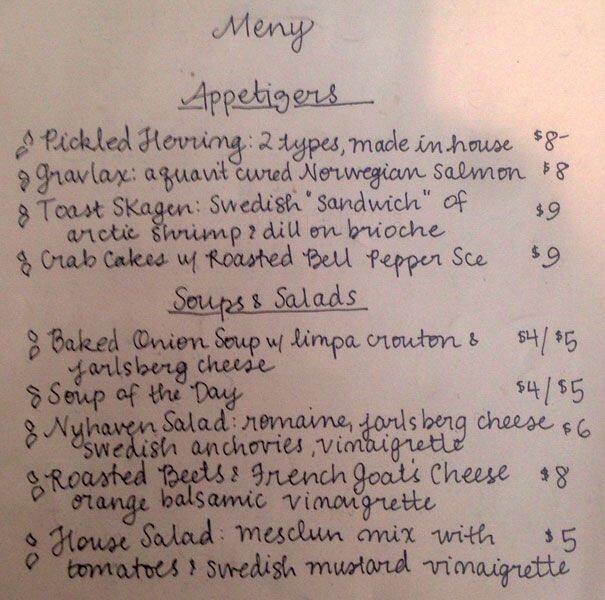 Meny
Appetizers
Pickled Herring: 2 types, made in house $8-
Gravlax: aquavit cured Norwegian Salmon $8
Toast Skagen: Swedish "Sandwich" of $9
arctic shrimp & dill on brioche
Crab Cakes w/ Roasted Bell Pepper Sce $9
Soups & Salads
Baked Onion Soup w/ limpa crouton & $4/$5
jarlsberg cheese
Soup of the Day $4/$5
Nyhaven Salad: romaine, jarlsberg cheese $6
swedish anchovies, vinaigrette
Roasted Beets & French Goat's Cheese $8
orange balsamic vinaigrette
House Salad: mesclun mix with $5
tomatoes & swedish mustard vinaigrette